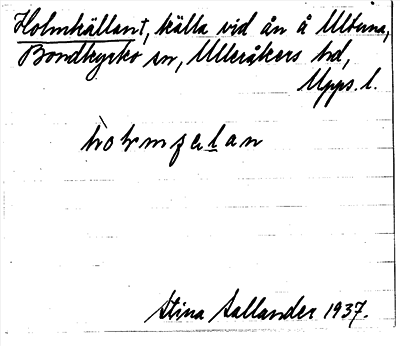 Holmkällan†, källa vid ån å Ultuna,
Bondkyrko sn, Ulleråkers hd,
Upps. l.
Stina Sallander 1937.